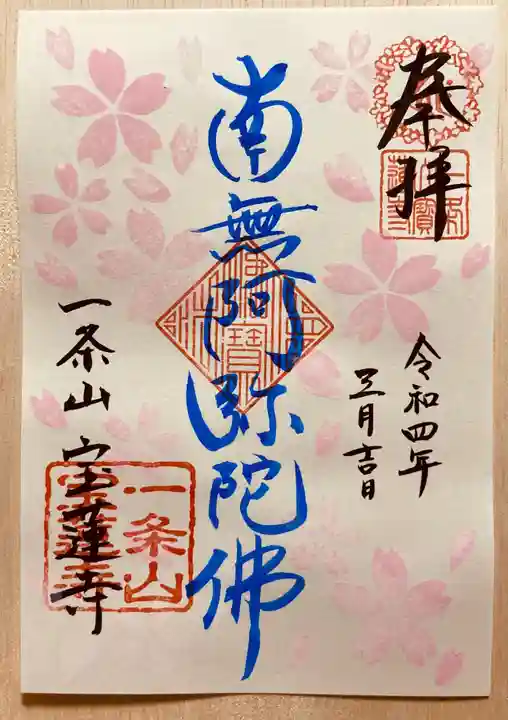 奉拝
令和四年
三月吉日
南無阿弥陀佛
一条山宝蓮寺
一条山
宝蓮寺